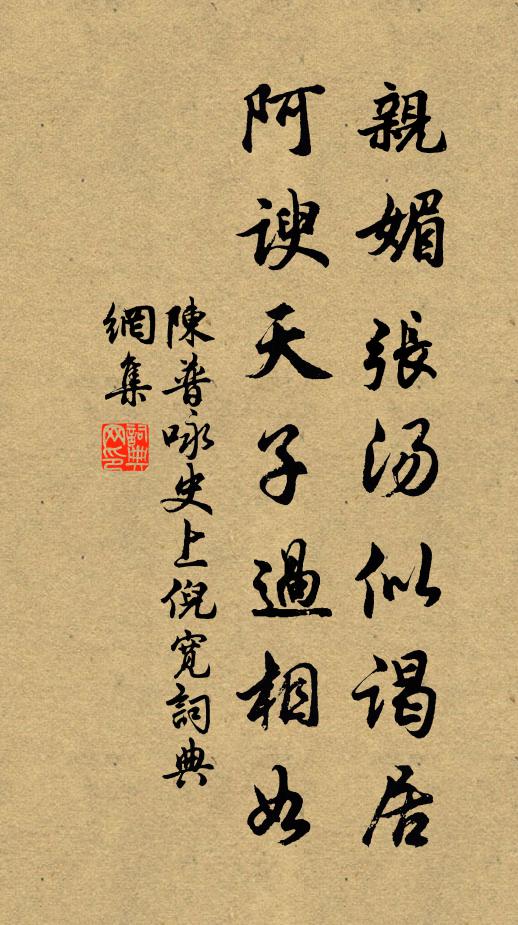 親媚張湯似謁居
阿諛天子過相如
陳普咏史上倪寬詞典
網集
詞典網印